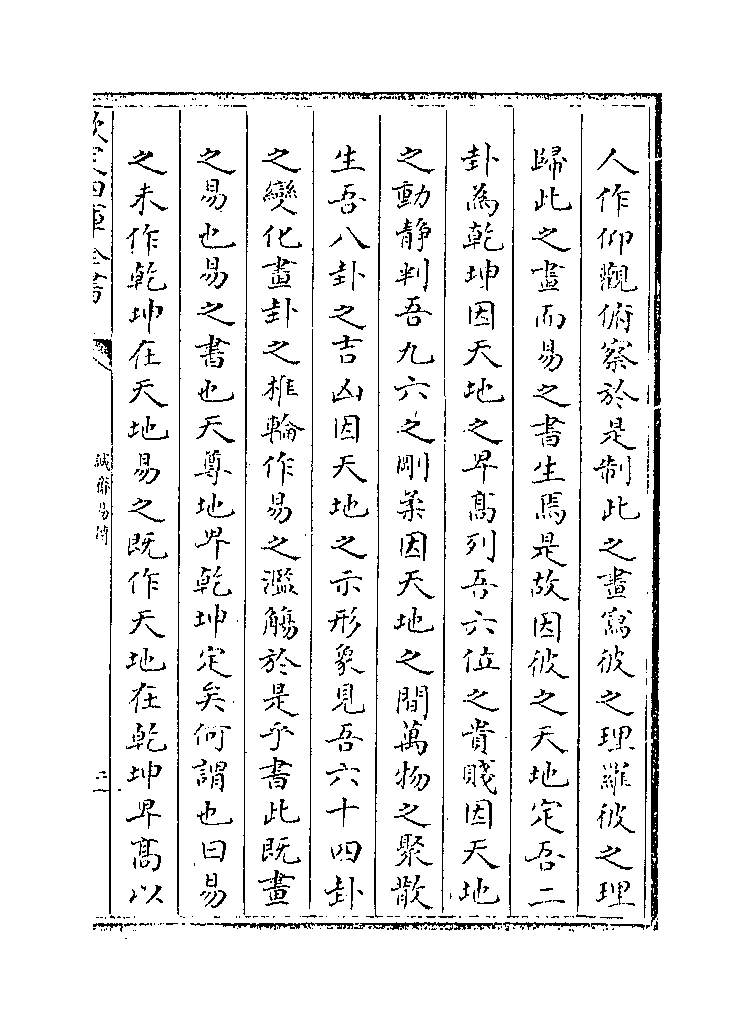 人作仰觀俯察於是制此之畫寫彼之理羅彼之理
歸此之畫而易之書生焉是故因彼之天地定吾二
卦為乾坤因天地之卑髙列吾六位之貴賤因天地
之動静判吾九六之剛柔因天地之間萬物之聚散
生吾八卦之吉凶因天地之示形象見吾六十四卦
之變化畫卦之椎輪作易之濫觴於是乎書此既畫
之易也易之書也天尊地卑乾坤定矣何謂也曰易
之未作乾坤在天地易之既作天地在乾坤卑髙以
欽定四庫全書
誠齋易傳
二